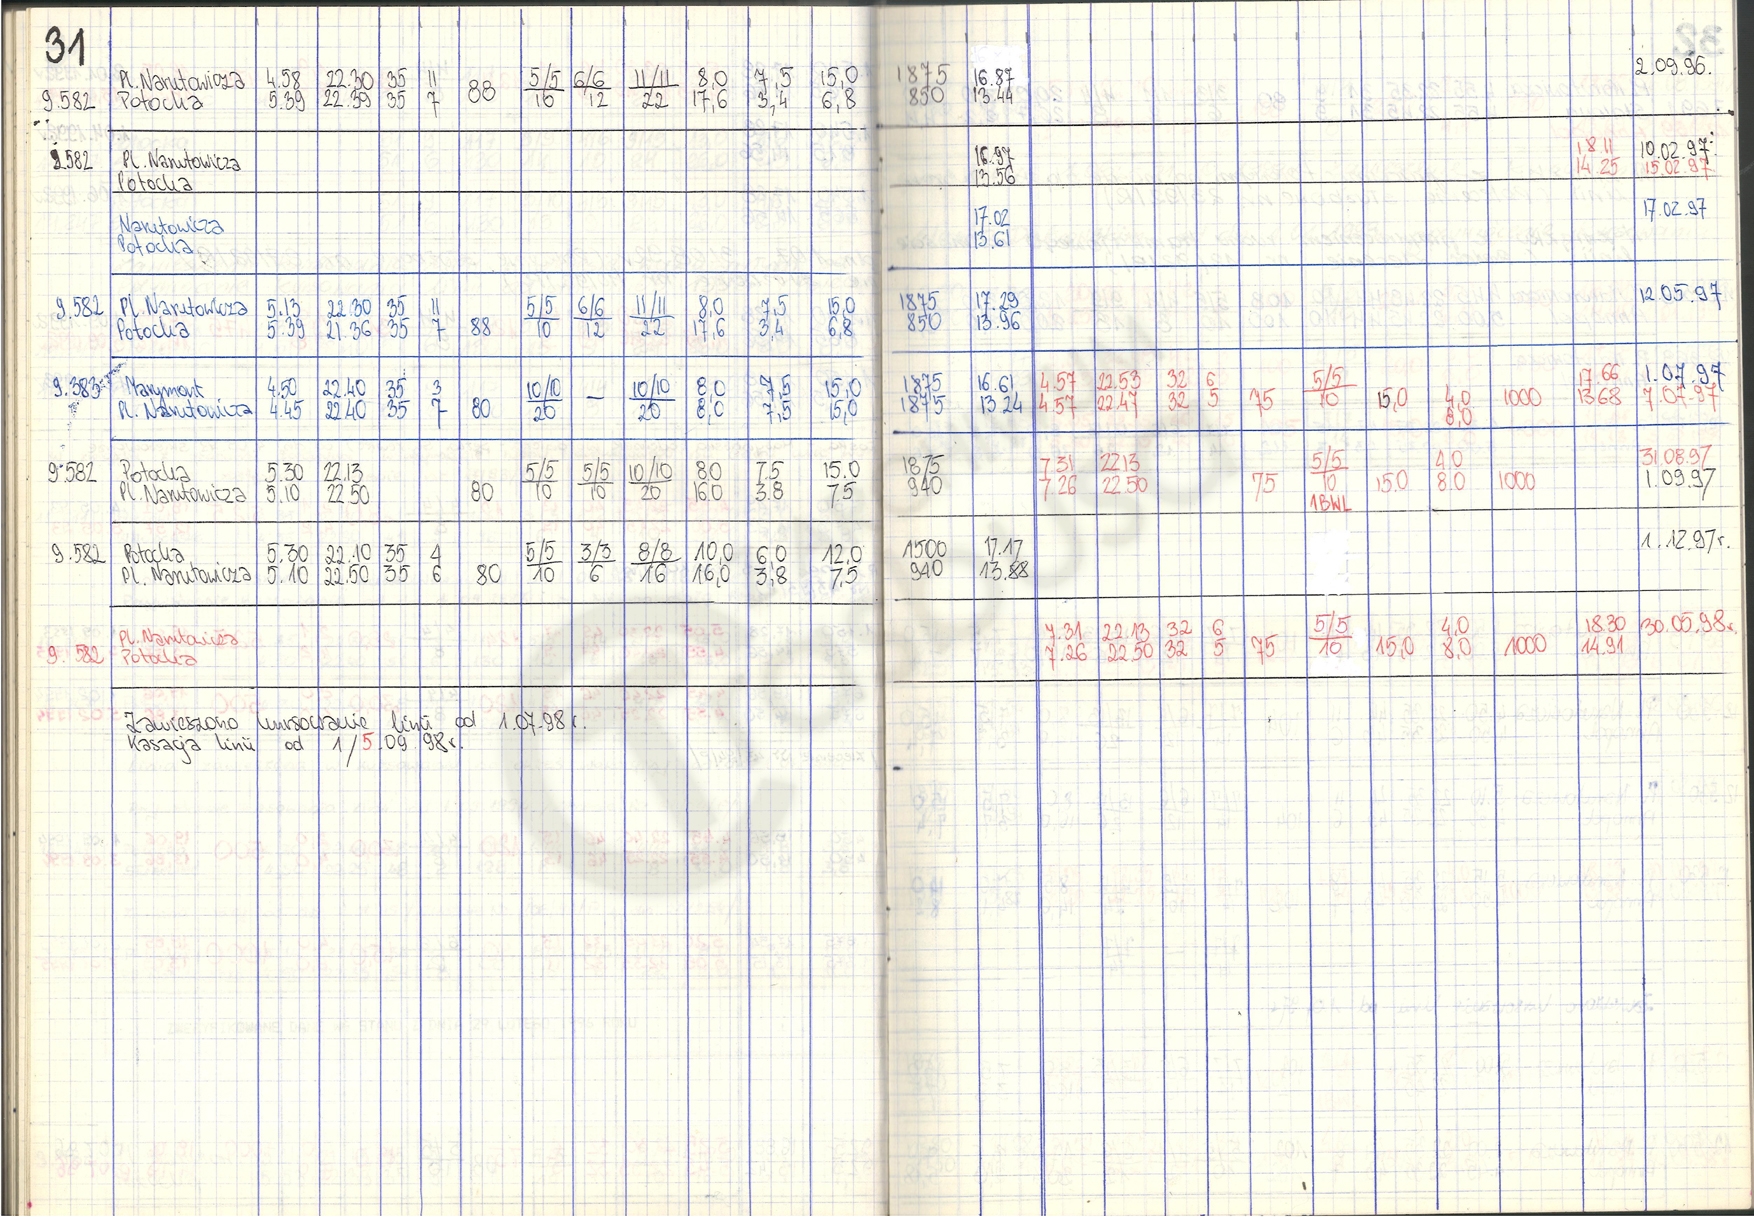 31
Pl. Narutowicza 4.58 22.30 35 11 88 5/5 6/6 11/11 8,0 7,5 15,0 1875 16.87 2.09.96.
9.582 Potocka 5.39 22.39 35 7 10 12 22 17,6 3,4 6,8 850 13.44
9.582 Pl. Narutowicza 16.97 18.11 10.02.97
Potocka 13.56 14.25 15.02.97
Narutowicza 17.02 17.02.97
Potocka 13.61
9.582 Pl. Narutowicza 5.13 22.30 35 11 5/5 6/6 11/11 8,0 7,5 15,0 1875 17.29 12.05.97
Potocka 5.39 21.36 35 7 88 10 12 22 17,6 3,4 6,8 850 13.96
9.383 Marymont 4.50 22.40 35 3 10/10 10/10 8,0 7,5 15,0 1875 16.61 4.57 22.53 32 6 5/5 17.66 1.07.97
Pl. Narutowicza 4.45 22.40 35 7 80 20 — 20 8,0 7,5 15,0 1875 13.24 4.57 22.47 32 5 75 10 15,0 4,0 1000 13.68 7.07.97
8,0
9.582 Potocka 5.30 22.13 5/5 5/5 10/10 8.0 7.5 15.0 1875 7.31 22.13 5/5 4.0 31.08.97
Pl. Narutowicza 5.10 22.50 80 10 10 20 16.0 3.8 7,5 940 7.26 22.50 75 10 15.0 8.0 1000 1.09.97
1BWL
9.582 Potocka 5.30 22.10 35 4 5/5 3/3 8/8 10,0 6,0 12,0 1500 17.17 1.12.97r.
Pl. Narutowicza 5.10 22.50 35 6 80 10 6 16 16,0 3,8 7,5 940 13.88
Pl. Narutowicza 7.31 22.13 32 6 5/5 4.0 18.30 30.05.98r.
9.582 Potocka 7.26 22.50 32 5 75 10 15,0 8,0 1000 14.91
Zawieszono kursowanie linii od 1.07.98r.
Kasacja linii od 1/5.09.98r.